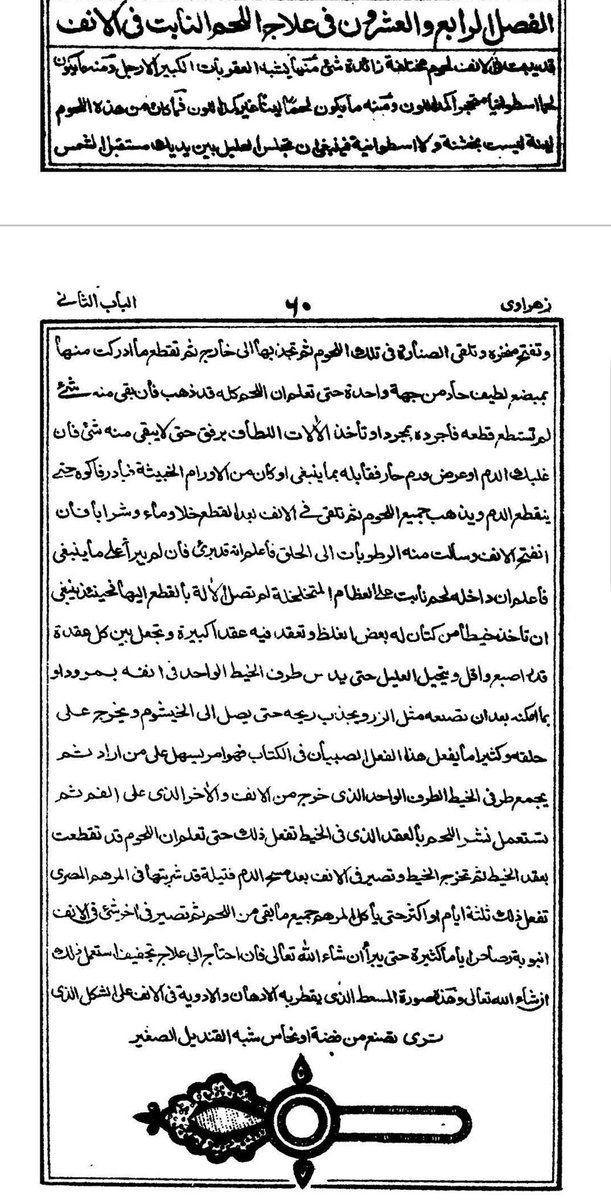 الفصل الرابع والعشرون فى علاج اللحم النابت فى الانف
قد ينبت فى الانف لحوم مختلفة زائدة شئ منها يشبه العقربان الكبير الارجل ومنه ما يكون
لحما سرطانيا متحجرا كمد اللون ومنه ما يكون لحما لينا غير كمد اللون فما كان من هذه اللحوم
لينة ليست بخشنة ولا سرطانية فينبغى ان تجلس العليل بين يديك مستقبل الشمس
زهراوى
٦٠
الباب الثانى
وتفتح منخره وتلقى الصنارة فى تلك اللحوم ثم تجذبها الى خارج ثم تقطع ما ادركت منها
بمبضع لطيف حاد من جهة واحدة حتى تعلم ان اللحم كله قد ذهب فان بقى منه شئ
لم تستطع قطعه فاجرده بمجرد او تأخذ الالات اللطاف برفق حتى لا يبقى منه شئ فان
غلبك الدم او عرض ورم حار فقابله بما ينبغى او كان من الاورام الخبيثة فبادر فاكوه حتى
ينقطع الدم ويذهب جميع اللحوم ثم تلقى فى الانف بعد القطع خلا وماء وشرابا فان
انفتح الانف وسالت منه الرطوبات الى الحلق فاعلم انه قد برئ فان لم يبرأ على ما ينبغى
فاعلم ان داخله لحم نابت على العظام المتخلخلة لم تصل الالة بالقطع اليها فحينئذ ينبغى
ان تاخذ خيطا من كتان له بعض الغلظ وتعقد فيه عقدا كبيرة وتجعل بين كل عقدة
قدر اصبع واقل ويتحيل العليل حتى يدس طرف الخيط الواحد فى انفه بمرود او
بما امكنه بعد ان تصنعه مثل الزر ويجذب ريحه حتى يصل الى الخيشوم ويخرج على
حلقه وكثيرا ما يفعل هذا الفعل الصبيان فى الكتاب فهو امر يسهل على من اراد ثم
يجمع طرفى الخيط الطرف الواحد الذى خرج من الانف والأخر الذى على الفم ثم
تستعمل نشر اللحم بالعقد الذى فى الخيط تفعل ذلك حتى تعلم ان اللحوم قد تقطعت
بعقد الخيط ثم تخرج الخيط وتصير فى الانف بعد مسح الدم فتيلة قد شربتها فى المرهم المصرى
تفعل ذلك ثلثة ايام او اكثر حتى يأكل المرهم جميع ما بقى من اللحم ثم تصير فى اخر شئ فى الانف
انبوبة رصاص اياما كثيرة حتى يبرأ ان شاء الله تعالى فان احتاج الى علاج تجفيف استعمل ذلك
ان شاء الله تعالى وهذه صورة المسعط الذى يقطر به الادهان والادوية فى الانف على الشكل الذى
ترى تصنع من فضة او نحاس شبه القنديل الصغير